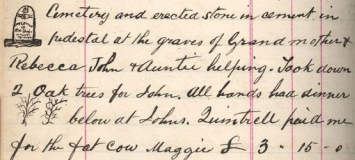 Cemetery and erected stone in cement in
pedestal at the graves of Grand mother &
Rebecca John & Auntie helping. Took down
2 Oak trees for John. All hands had dinner
below at Johns. Quintrell paid me
for the fat cow Maggie £ 3 - 15 - 0